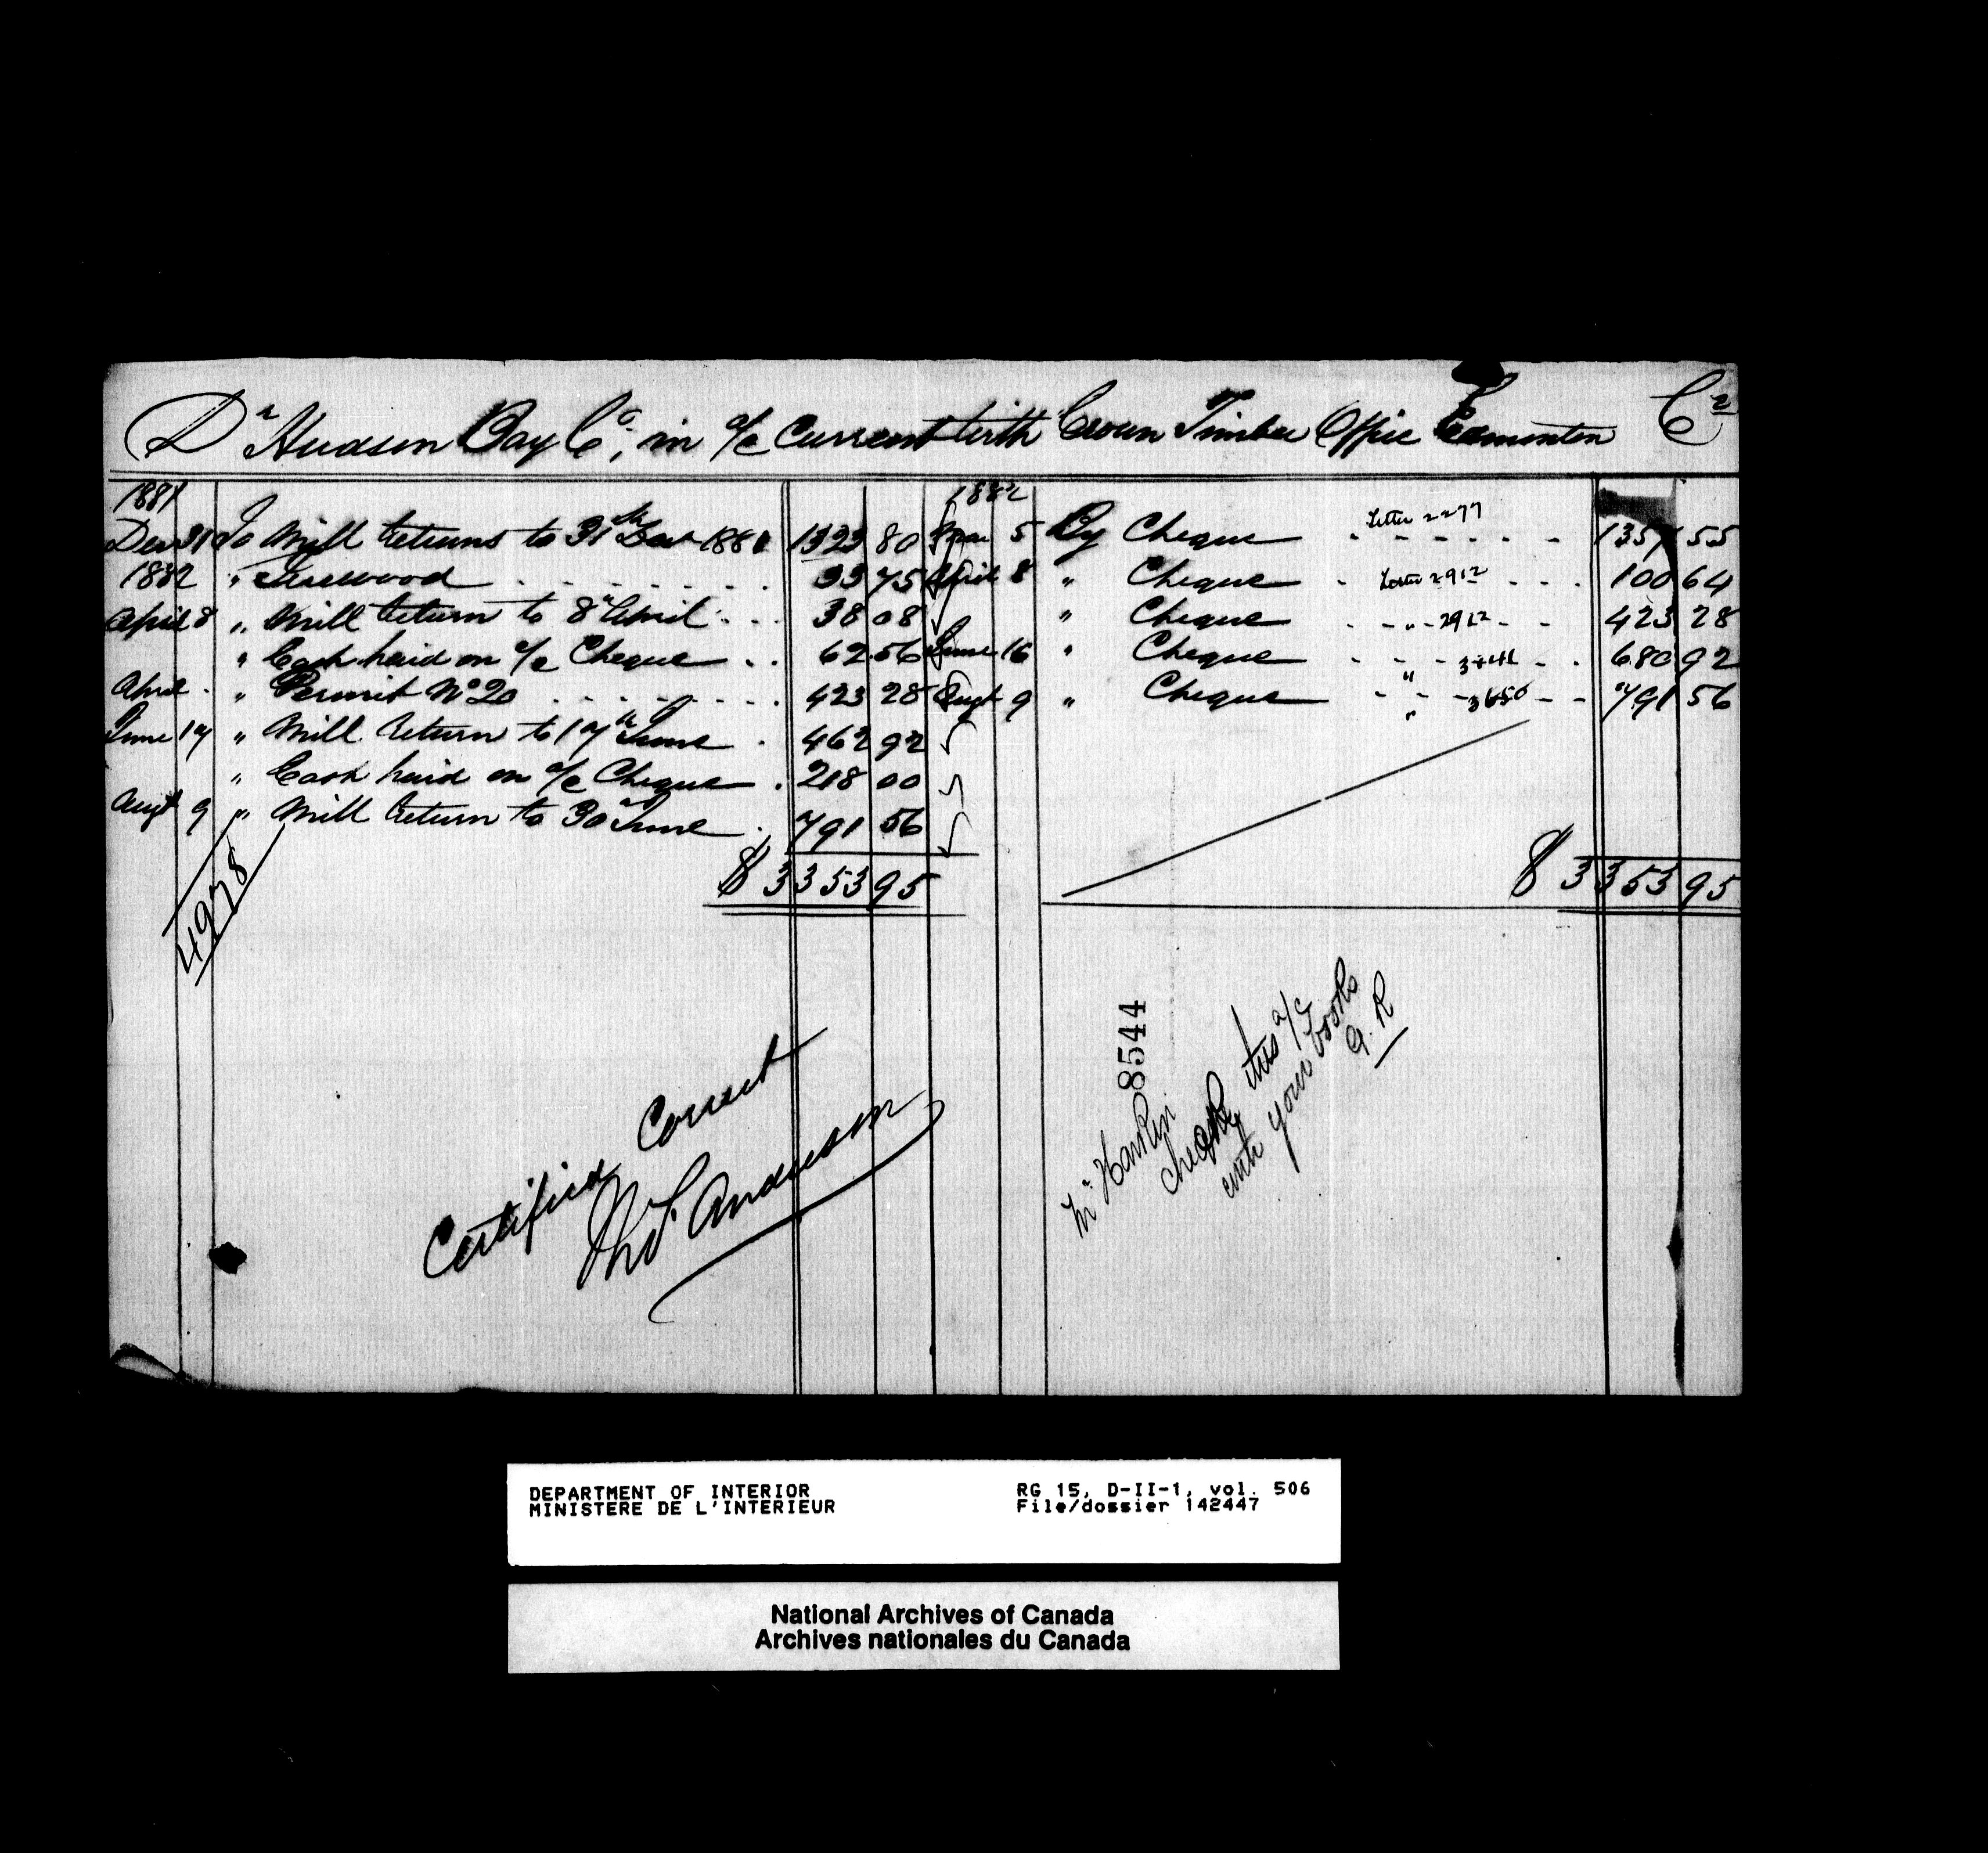 Dr Hudson Bay Co, in a/c Current with Crown Timber Office Edmonton Cr
1881 1882
Dec 31 To Mill Returns to 31st Decr 1881 1323 80 Jan 5 By Cheque Letter 2277 1357 55
1882 " Firewood 33 75 April 8 " Cheque Letter 2912 100 64
April 8 " Mill Return to 8th April 38 08 " Cheque " 2912 423 28
" Cash paid on a/c Cheque 62 56 June 16 " Cheque " 680 92
April " Permit No 20 423 28 Augt 9 " Cheque " 3650 791 56
June 17 " Mill Return to 17th June 462 92
" Cash paid on a/c Cheque 218 00
Augt 9 " Mill Return to 30th June 791 56
$ 3353 95 $ 3353 95
4978
Certified Correct
Thos Anderson
8544
Mr Harkin
check this a/c
with your books
A. R
DEPARTMENT OF INTERIOR RG 15, D-II-1, vol. 506
MINISTERE DE L'INTERIEUR File/dossier 142447
National Archives of Canada
Archives nationales du Canada